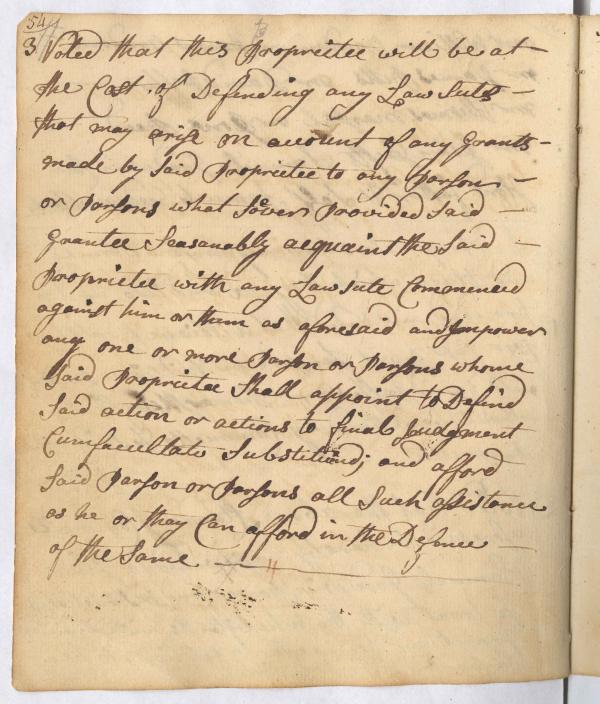 54
3 Voted that this Proprietee will be at
the Cost of Defending any Law Sutes
that may arise on account of any Grants
made by Said Proprietee to any Parson
or Parsons what Soever Provided Said
Grantee Seasonably acquaint the Said
Proprietee with any Law Sute Commenced
against him or them as aforesaid and Impower
any one or more Parson or Parsons whome
Said Proprietee Shall appoint to Defend
Said action or actions to final Judgment
Cumfacultate Substituend; and afford
Said Parson or Parsons all Such assistance
as he or they Can afford in the Defence
of the Same